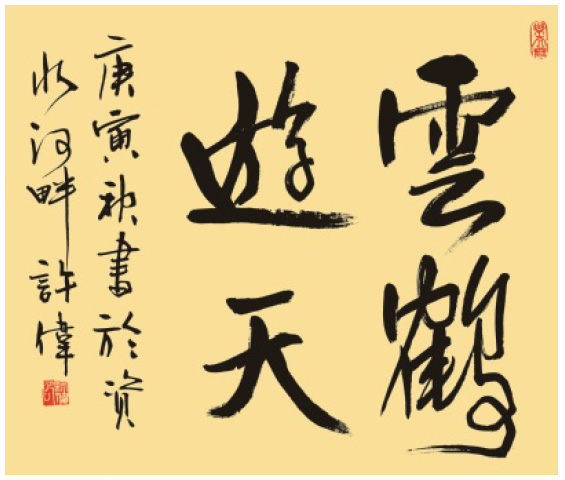 雲鶴
遊天
庚寅秋書於資
水河畔許偉